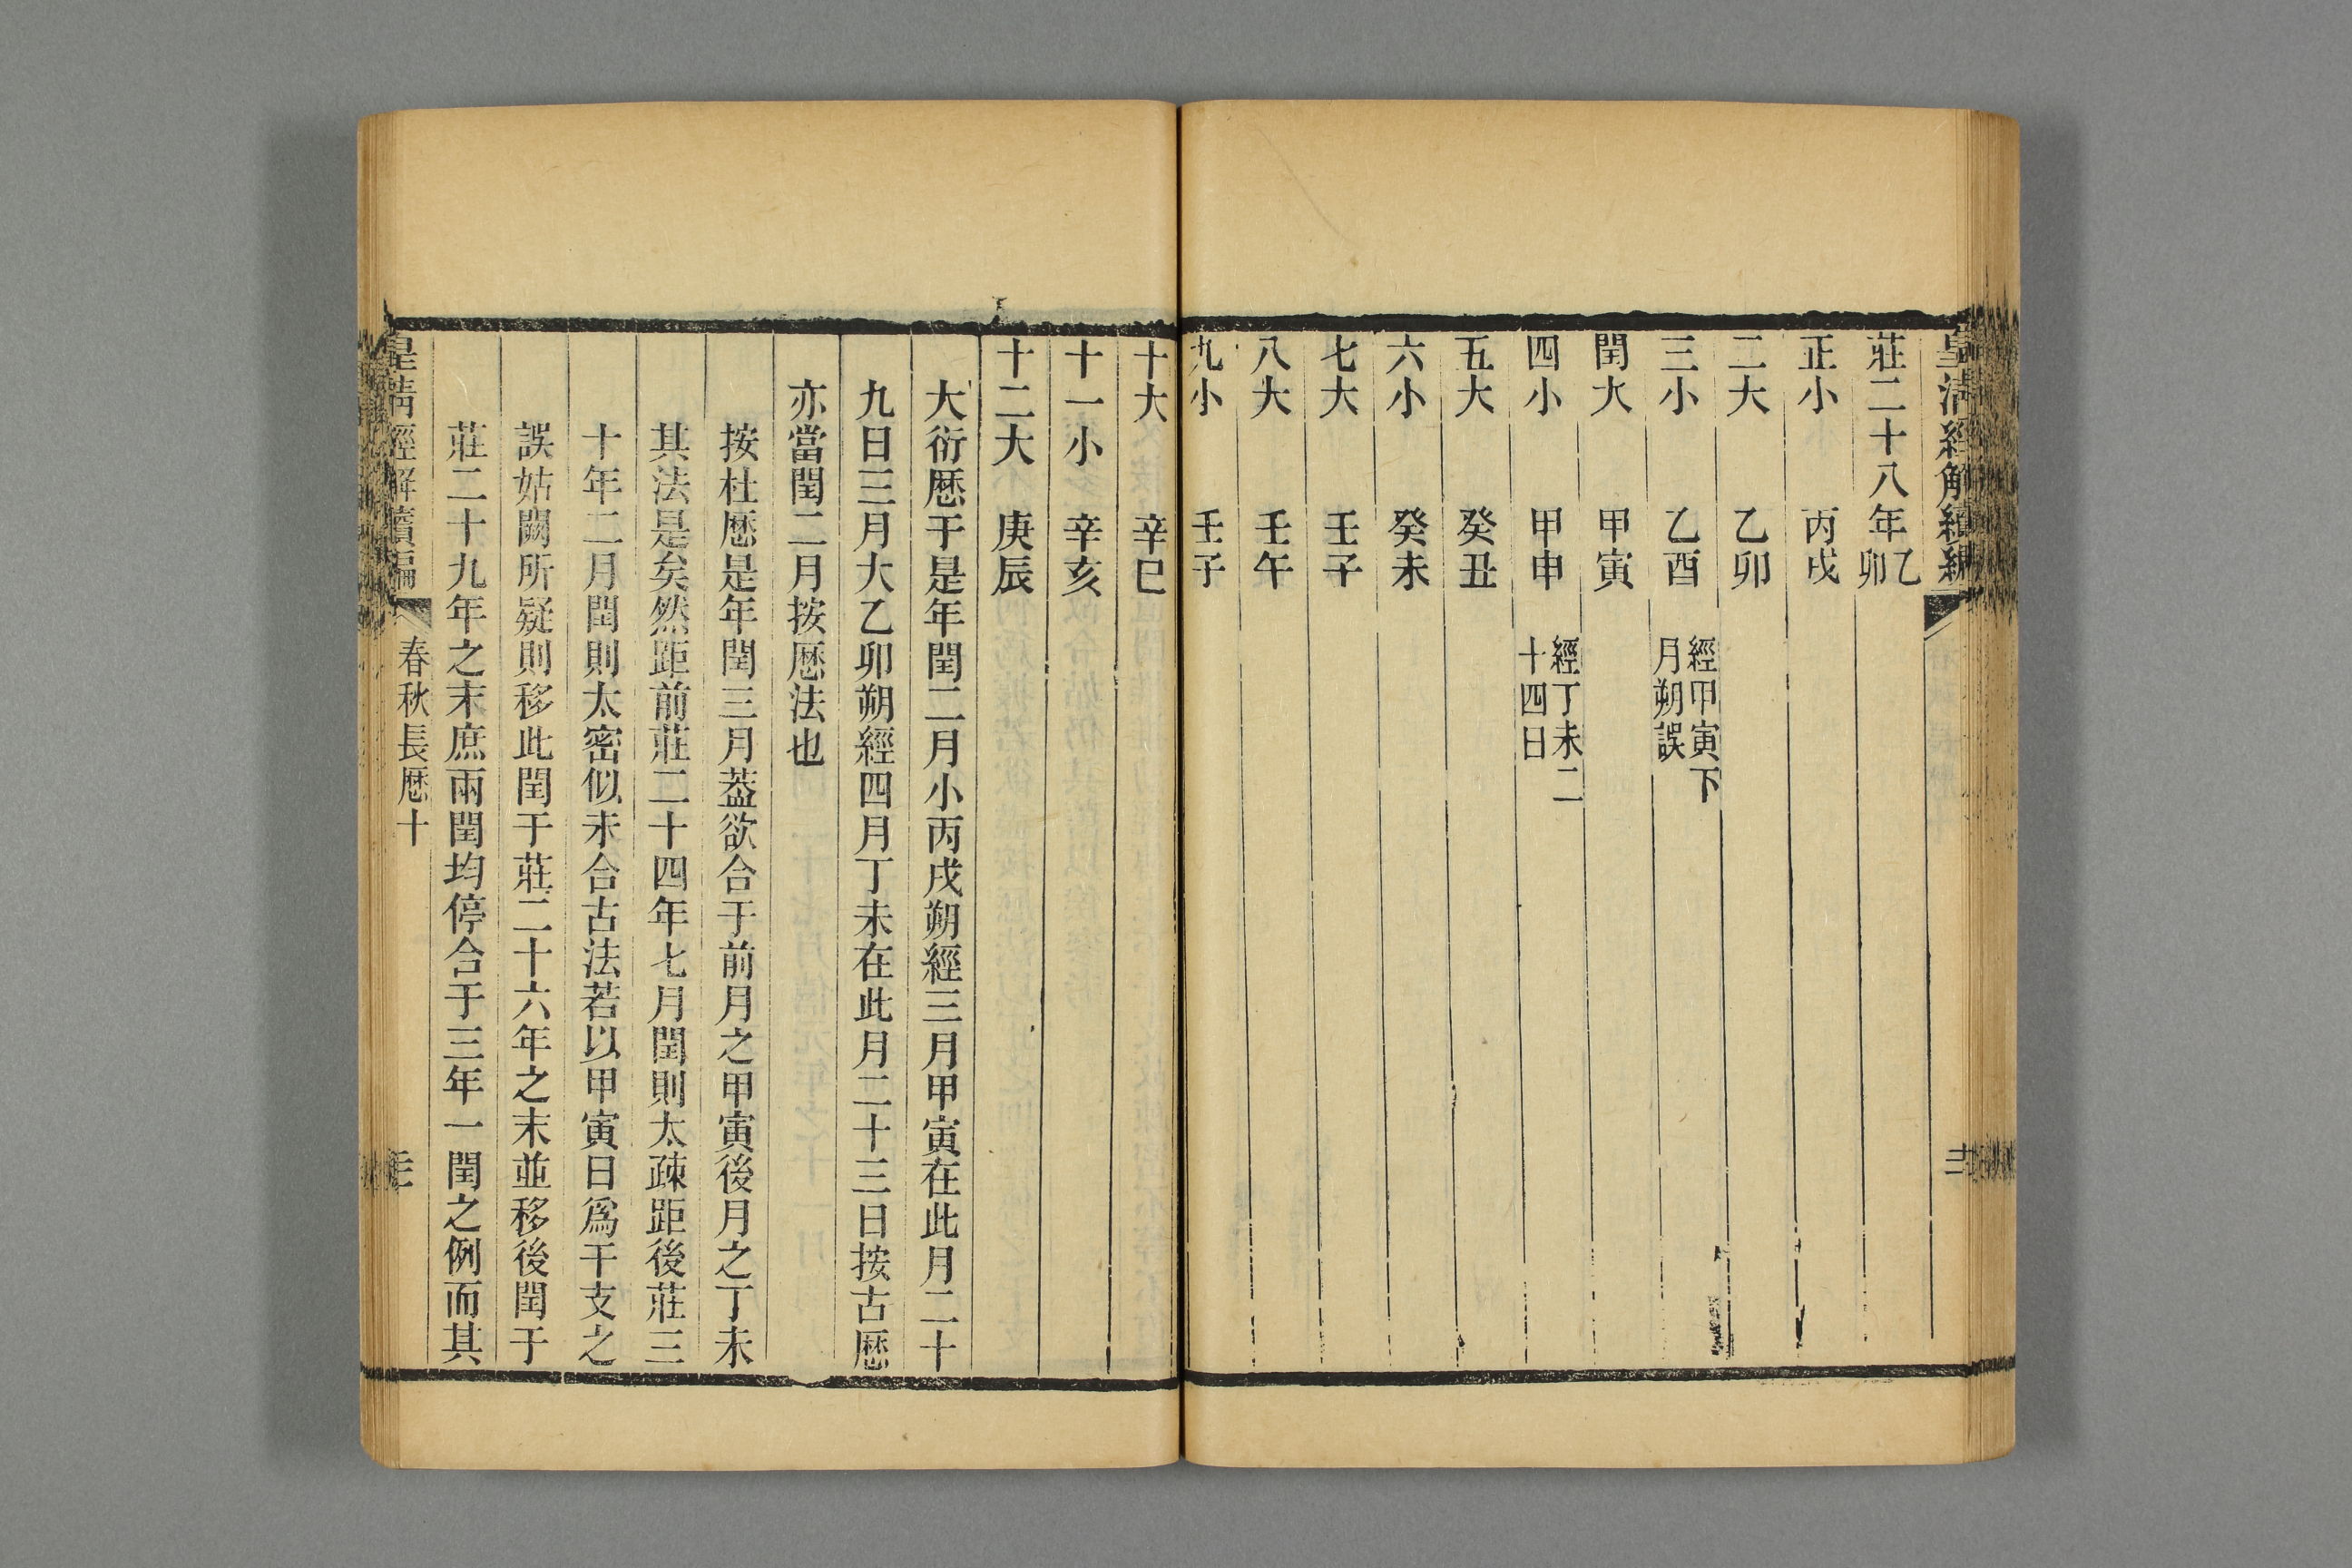 皇清經解續編
莊二十八年乙卯
正小　丙戌
二大　乙卯
三小　乙酉　經甲寅下月朔誤
閏大　甲寅
四小　甲申　經丁未二十四日
五大　癸丑
六小　癸未
七大　壬子
八大　壬午
九小　壬子
十大　辛巳
十一小　辛亥
十二大　庚辰
大衍厯于是年閏二月小丙戌朔經三月甲寅在此月二十
九日三月大乙卯朔經四月丁未在此月二十三日按古厯
亦當閏二月按厯法也
按杜厯是年閏三月葢欲合于前月之甲寅後月之丁未
其法是矣然距前莊二十四年七月閏則太疎距後莊三
十年二月閏則太密似未合古法若以甲寅日爲干支之
誤姑闕所疑則移此閏于莊二十六年之末並移後閏于
莊二十九年之末庶兩閏均停合于三年一閏之例而其
皇清經解續編　春秋長厯十